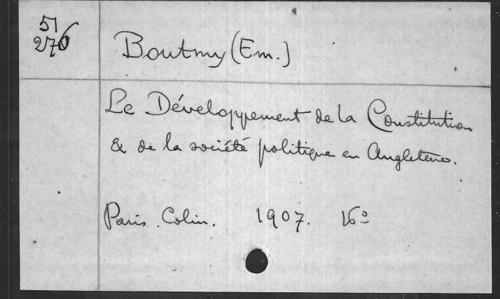 51
276
Boutmy (Em.)
Le Développement de la Constitution
& de la société politique en Angleterre.
Paris. Colin. 1907. 16º